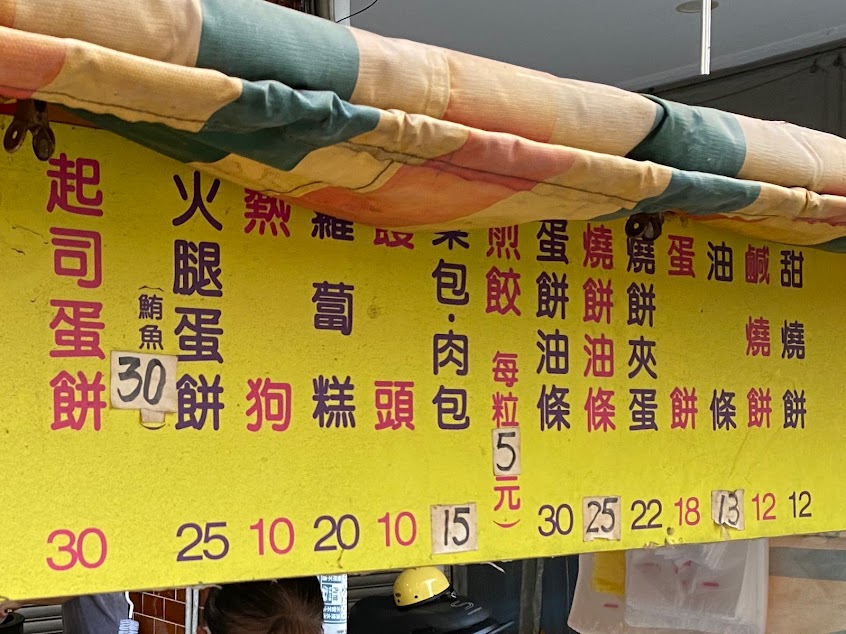 甜燒餅 12
鹹燒餅 12
油條 13
蛋餅 18
燒餅夾蛋 22
燒餅油條 25
蛋餅油條 30
煎餃(每粒5元)
菜包·肉包 15
饅頭 10
蘿蔔糕 20
熱狗 10
火腿蛋餅 25
(鮪魚30)
起司蛋餅 30